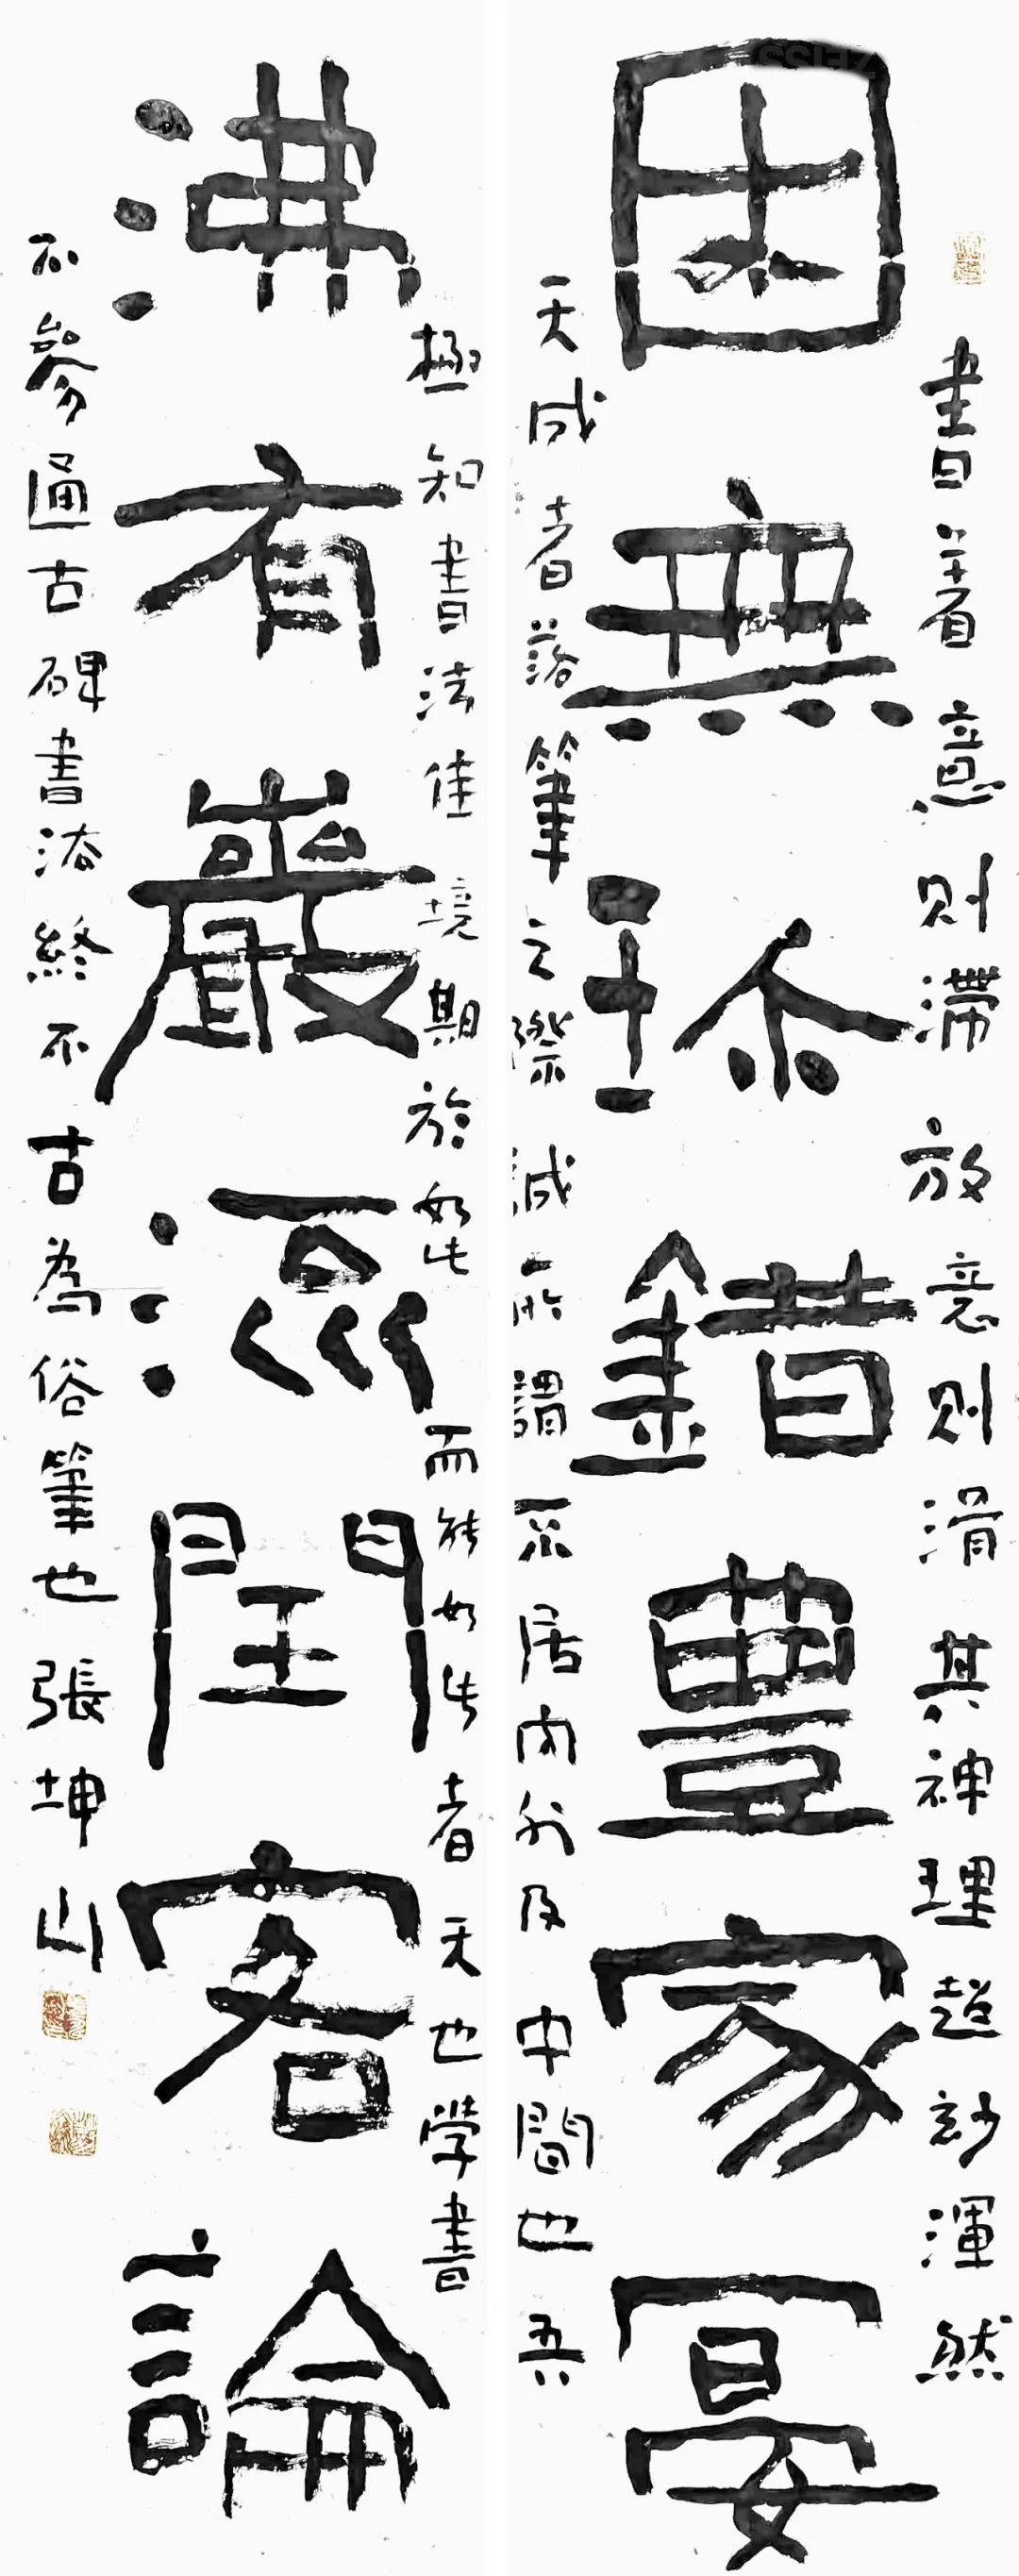 書著意則滯放意則滑其神理超妙渾然
因無珎錯豊家宴
天成者落筆之際誠所謂不居內外及中間也吾
極知書法佳境期於如此而能如此者天也學書
沸有嚴流閏客論
不參通古碑書法終不古為俗筆也張坤山